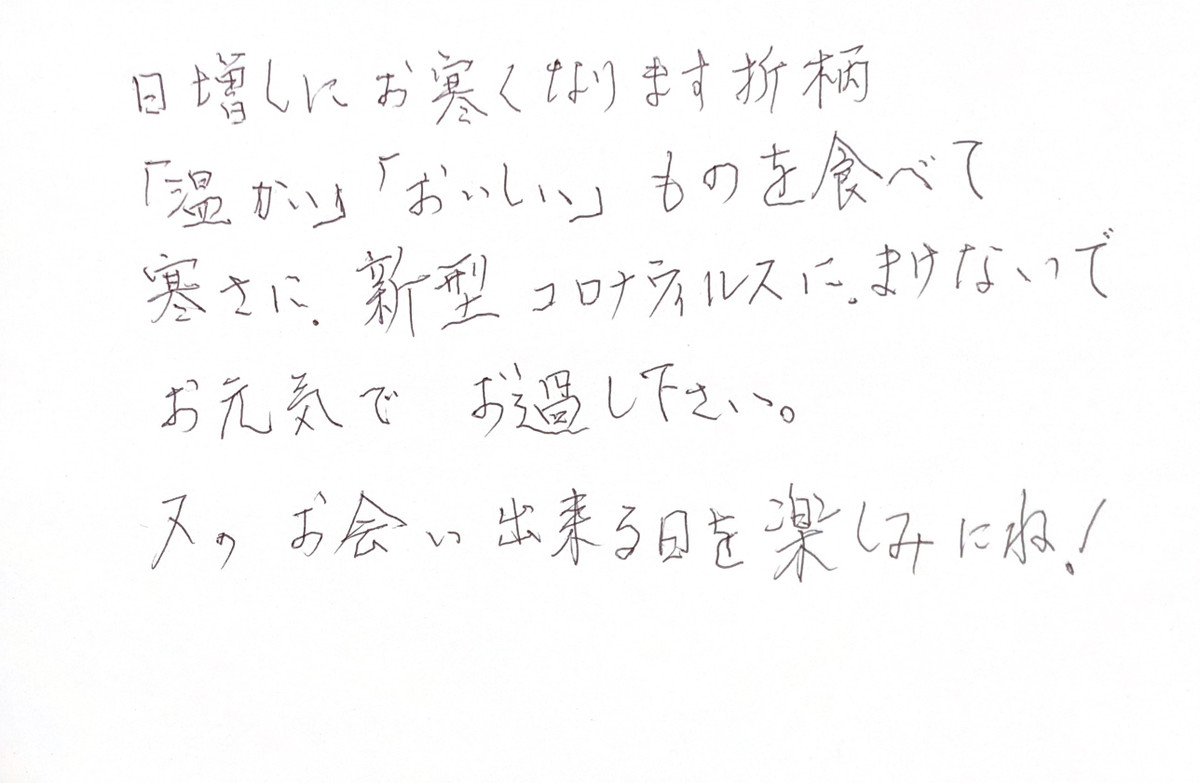 日増しにお寒くなります折柄
「温かい」「おいしい」ものを食べて
寒さに.新型コロナウィルスに.まけないで
お元気で お過し下さい。
又の お会い出来る日を楽しみにね!